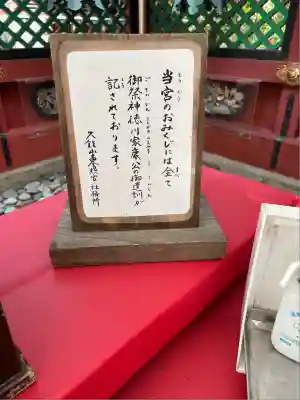 当宮のおみくじには全て
御祭神徳川家康公の御遺訓が
記されております。
久能山東照宮社務所